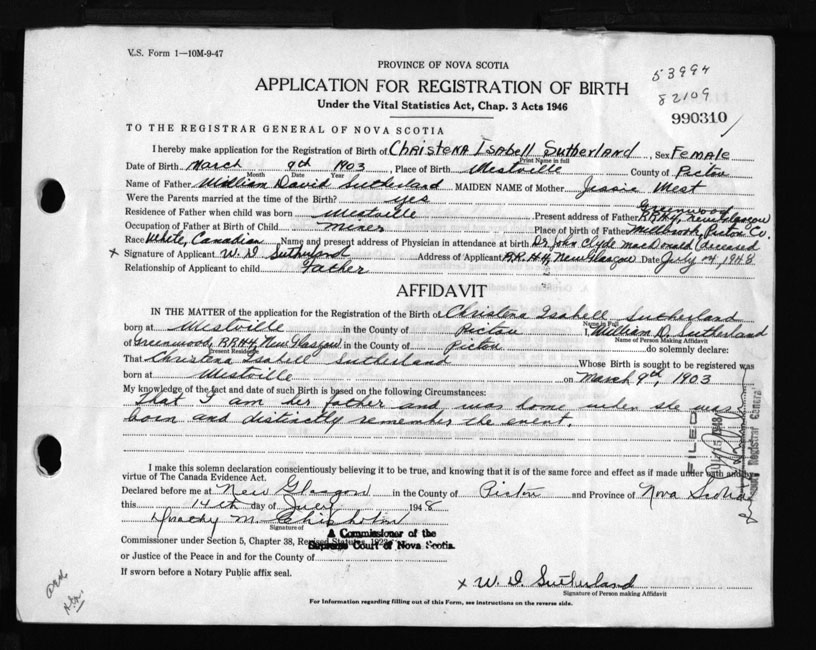 V.S. Form 1—10M-9-47
PROVINCE OF NOVA SCOTIA
53994
APPLICATION FOR REGISTRATION OF BIRTH
82109
Under the Vital Statistics Act, Chap. 3 Acts 1946
990310
TO THE REGISTRAR GENERAL OF NOVA SCOTIA
I hereby make application for the Registration of Birth of Christena Isabell Sutherland, Sex Female
Print Name in full
Date of Birth March 9th 1903, Place of Birth Westville County of Pictou
Month Date Year
Name of Father William David Sutherland MAIDEN NAME of Mother Jessie West
Were the Parents married at the time of the Birth? yes
Greenwood
Residence of Father when child was born Westville Present address of Father R.R.#4, New Glasgow
Occupation of Father at Birth of Child Miner Place of birth of Father Millbrook, Pictou Co.
Race White, Canadian Name and present address of Physician in attendance at birth Dr John Clyde MacDonald (deceased
x Signature of Applicant W. D Sutherland Address of Applicant R.R.#4, New Glasgow Date July 14, 1948
Relationship of Applicant to child Father
AFFIDAVIT
IN THE MATTER of the application for the Registration of the Birth of Christena Isabell Sutherland
Name in Full
born at Westville in the County of Pictou I, William D. Sutherland
Name of Person Making Affidavit
of Greenwood, R.R.#4, New Glasgow in the County of Pictou do solemnly declare:
Present Residence
That Christena Isabell Sutherland Whose Birth is sought to be registered was
born at Westville on March 9th, 1903
My knowledge of the fact and date of such Birth is based on the following Circumstances:
That I am her father and was home when she was
born and distinctly remember the event.
FILED
Registrar General
I make this solemn declaration conscientiously believing it to be true, and knowing that it is of the same force and effect as if made under oath and by
virtue of The Canada Evidence Act.
Declared before me at New Glasgow in the County of Pictou and Province of Nova Scotia
this 14th day of July 1948
Dorothy M. Chisholm
Signature of
A Commissioner of the
Supreme Court of Nova Scotia.
Commissioner under Section 5, Chapter 38, Revised Statutes, 1923
or Justice of the Peace in and for the County of
If sworn before a Notary Public affix seal.
x W. D. Sutherland
Signature of Person making Affidavit
For Information regarding filling out of this Form, see instructions on the reverse side.